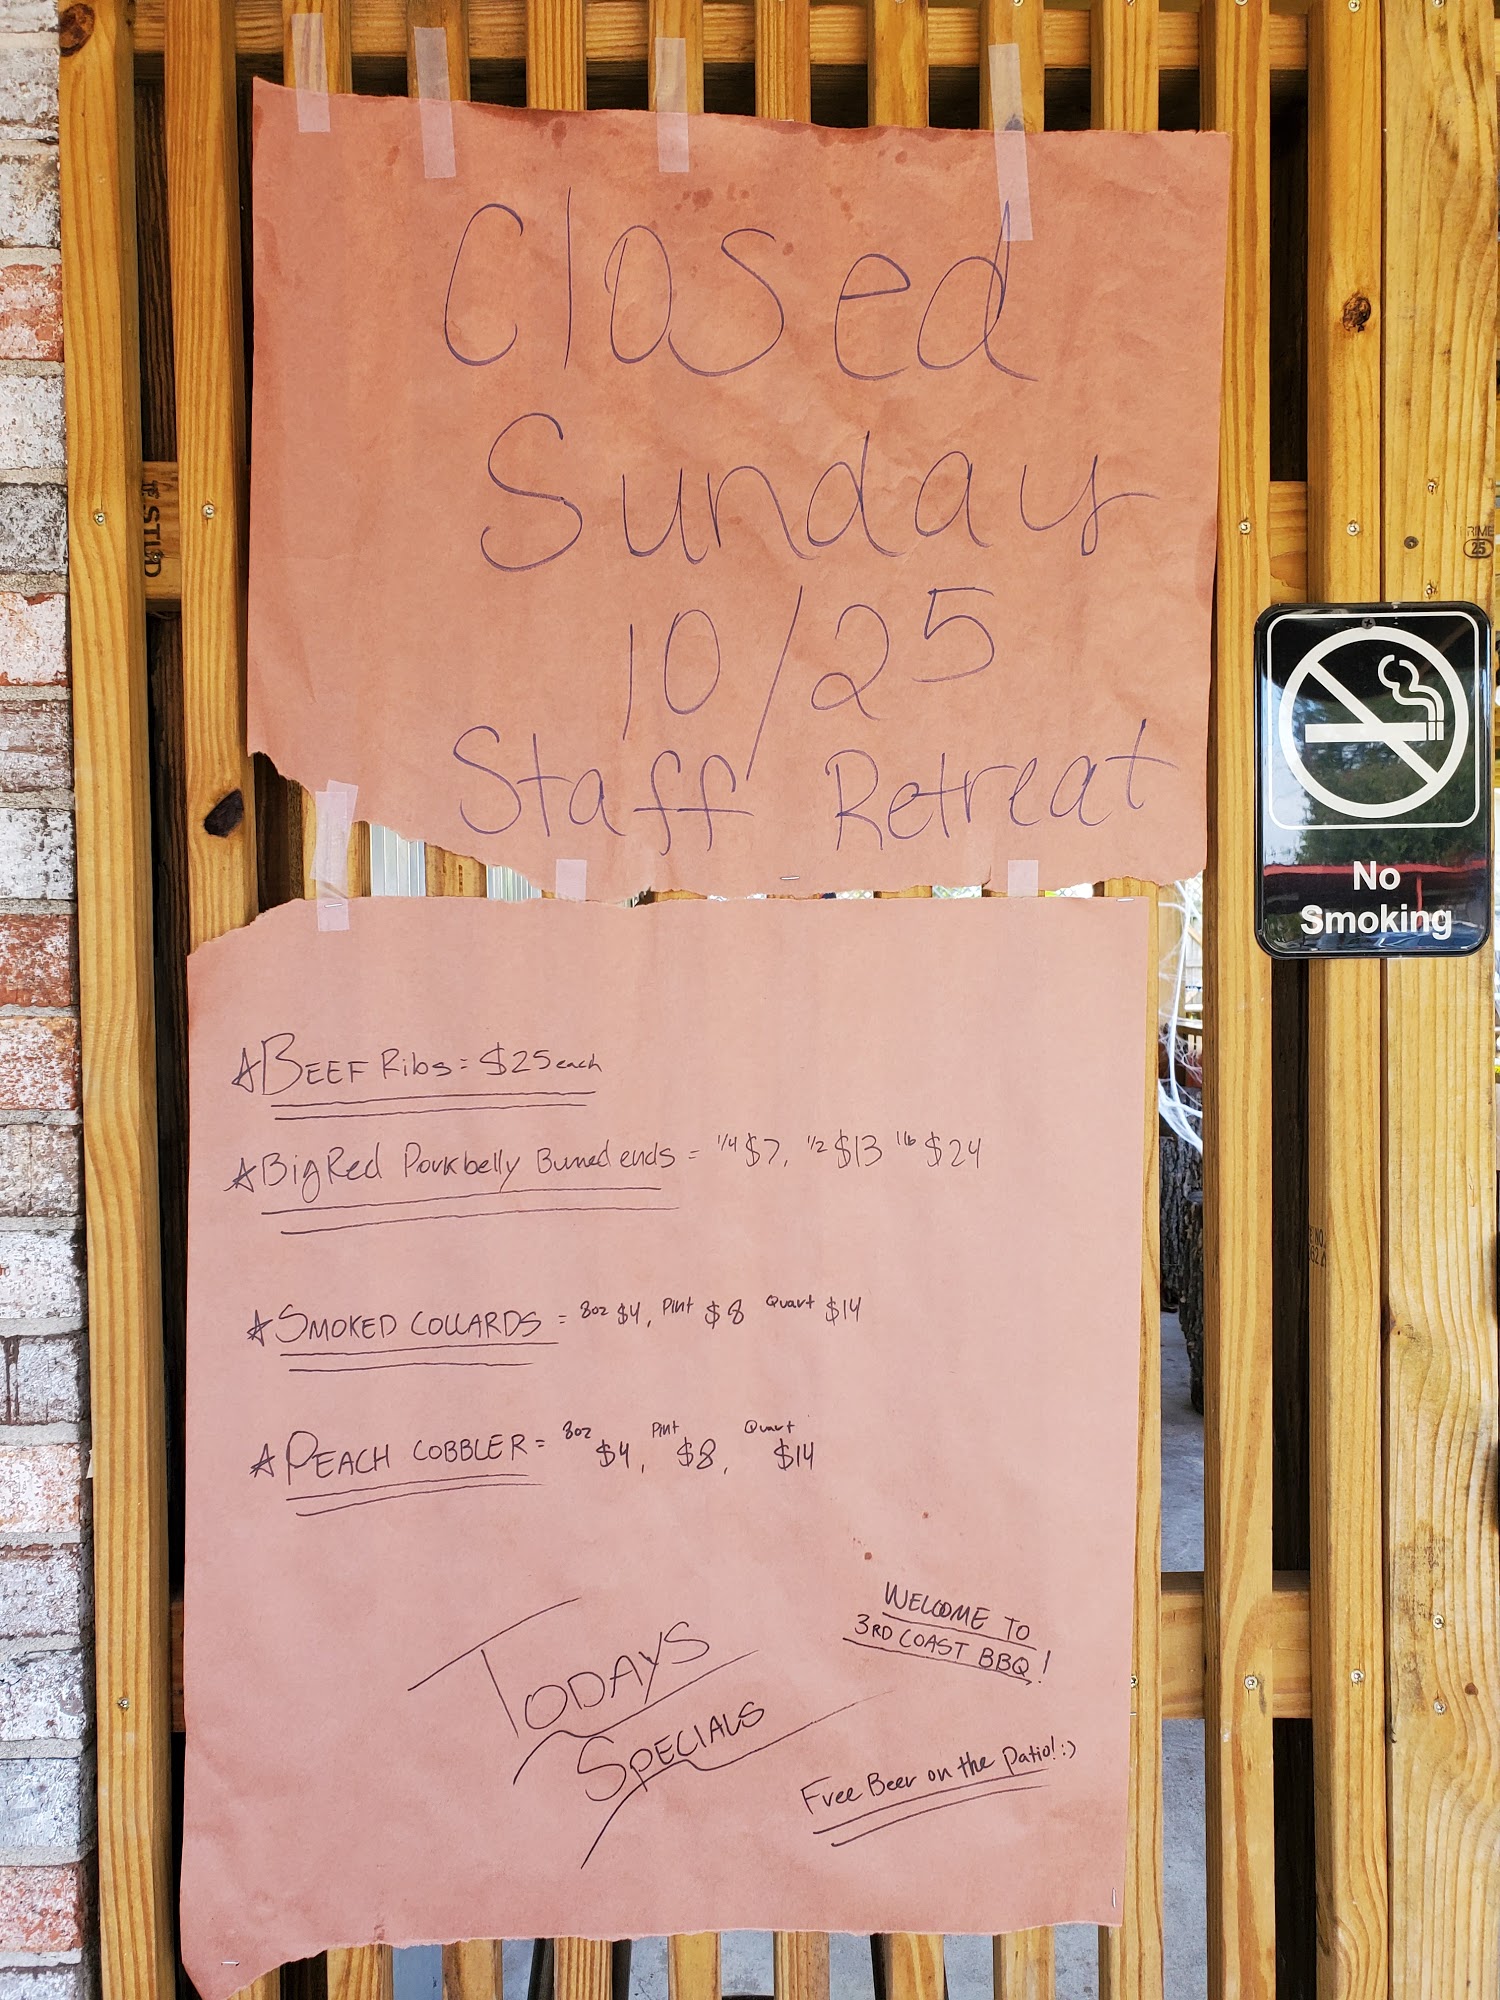 Closed
Sunday
10/25
Staff Retreat
No
Smoking
☆ BEEF Ribs = $25 each
☆ Big Red Porkbelly Burned ends = 1/4 $7, 1/2 $13 1lb $24
☆ SMOKED COLLARDS = 8oz $4, Pint $8 Quart $14
☆ PEACH COBBLER = 8oz $4, Pint $8, Quart $14
TODAYS
SPECIALS
WELCOME TO
3RD COAST BBQ!
Free Beer on the Patio! :)
25